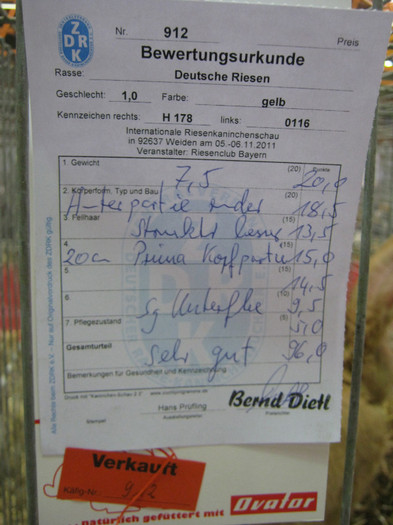 ZDRK
Nr. 912
Preis
Bewertungsurkunde
Rasse: Deutsche Riesen
Geschlecht: 1,0 Farbe: gelb
Kennzeichen rechts: H 178 links: 0116
Internationale Riesenkaninchenschau
in 92637 Weiden am 05.-06.11.2011
Veranstalter: Riesenclub Bayern
1. Gewicht 7,5 (20) 20,0
2. Körperform, Typ und Bau (20) 18,5
3. Fellhaar (15) 13,5
4. 20cm Prima Kopfpartie (15) 15,0
5. 14,5
6. sg Unterfbe (10) 9,5
7. Pflegezustand (5) 5,0
Gesamturteil sehr gut 96,0
Bemerkungen für Gesundheit und Kennzeichnung
Hans Prüfling
Bernd Dietl
Stempel Ausstellungsleiter Preisrichter
Alle Rechte beim ZDRK e.V. - Nur auf Originalvordruck des ZDRK gültig.
Verkauft
Käfig-Nr. 912
natürlich gefüttert mit Ovator